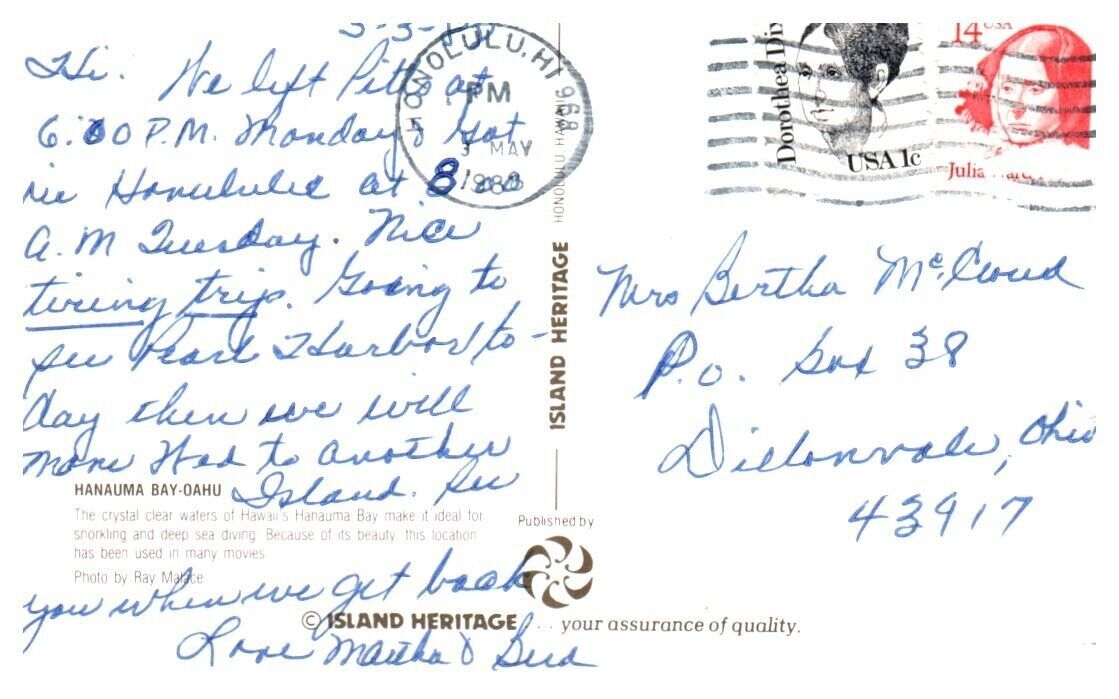 Hi. We left Pitts at
6:00 P.M. Monday & Got
in Honolulu at 8:00
A.M Tuesday. Nice
tiring trip. Going to
see Pearl Harbor to-
day then we will
move Wed to another
Island. See
you when we get back
Love Martha &
HANAUMA BAY-OAHU
The crystal clear waters of Hawaii's Hanauma Bay make it ideal for
snorkling and deep sea diving. Because of its beauty this location
has been used in many movies
Photo by Ray Malace
HONOLULU, HI 968
PM
3 MAY
HONOLULU HAWAII
ISLAND HERITAGE
Published by
© ISLAND HERITAGE . . your assurance of quality.
Dorothea Dix
USA 1c
14 USA
Julia
Mrs Bertha McCloud
P.O. Box 38
Dillonvale, Ohio
43917